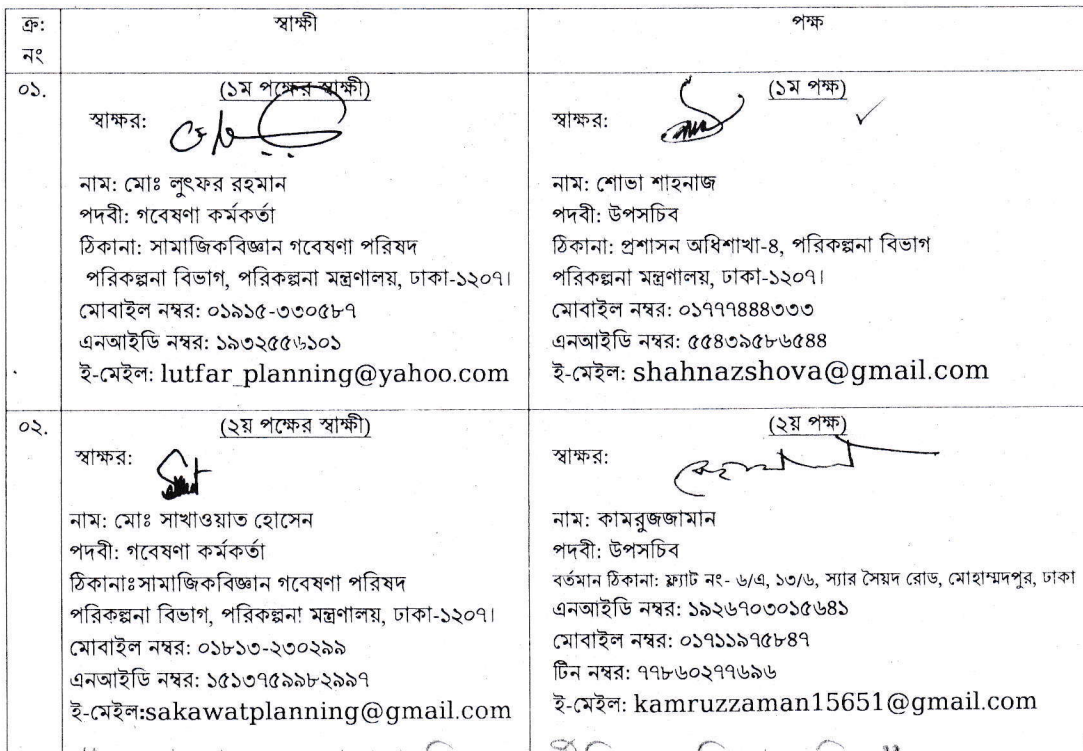 ক্র: নং
স্বাক্ষী
পক্ষ
০১.
(১ম পক্ষের স্বাক্ষী)
স্বাক্ষর:
নাম: মোঃ লুৎফর রহমান
পদবী: গবেষণা কর্মকর্তা
ঠিকানা: সামাজিকবিজ্ঞান গবেষণা পরিষদ
পরিকল্পনা বিভাগ, পরিকল্পনা মন্ত্রণালয়, ঢাকা-১২০৭।
মোবাইল নম্বর: ০১৯১৫-৩৩০৫৮৭
এনআইডি নম্বর: ১৯৩২৫৫৬১০১
ই-মেইল: lutfar_planning@yahoo.com
(১ম পক্ষ)
স্বাক্ষর:
নাম: শোভা শাহনাজ
পদবী: উপসচিব
ঠিকানা: প্রশাসন অধিশাখা-৪, পরিকল্পনা বিভাগ
পরিকল্পনা মন্ত্রণালয়, ঢাকা-১২০৭।
মোবাইল নম্বর: ০১৭৭৭৪৪৪৩৩৩
এনআইডি নম্বর: ৫৫৪৩৯৫৮৬৫৪৪
ই-মেইল: shahnazshova@gmail.com
০২.
(২য় পক্ষের স্বাক্ষী)
স্বাক্ষর:
নাম: মোঃ সাখাওয়াত হোসেন
পদবী: গবেষণা কর্মকর্তা
ঠিকানাঃসামাজিকবিজ্ঞান গবেষণা পরিষদ
পরিকল্পনা বিভাগ, পরিকল্পনা মন্ত্রণালয়, ঢাকা-১২০৭।
মোবাইল নম্বর: ০১৮১৩-২৩০২৯৯
এনআইডি নম্বর: ১৫১৩৭৫৯৯৮২৯৯৭
ই-মেইল:sakawatplanning@gmail.com
(২য় পক্ষ)
স্বাক্ষর:
নাম: কামরুজজামান
পদবী: উপসচিব
বর্তমান ঠিকানা: ফ্ল্যাট নং- ৬/এ, ১৩/৬, স্যার সৈয়দ রোড, মোহাম্মদপুর, ঢাকা
এনআইডি নম্বর: ১৯২৬৭০৩০১৫৬৪১
মোবাইল নম্বর: ০১৭১১৯৭৫৮৪৭
টিন নম্বর: ৭৭৮৬০২৭৭৬৯৬
ই-মেইল: kamruzzaman15651@gmail.com